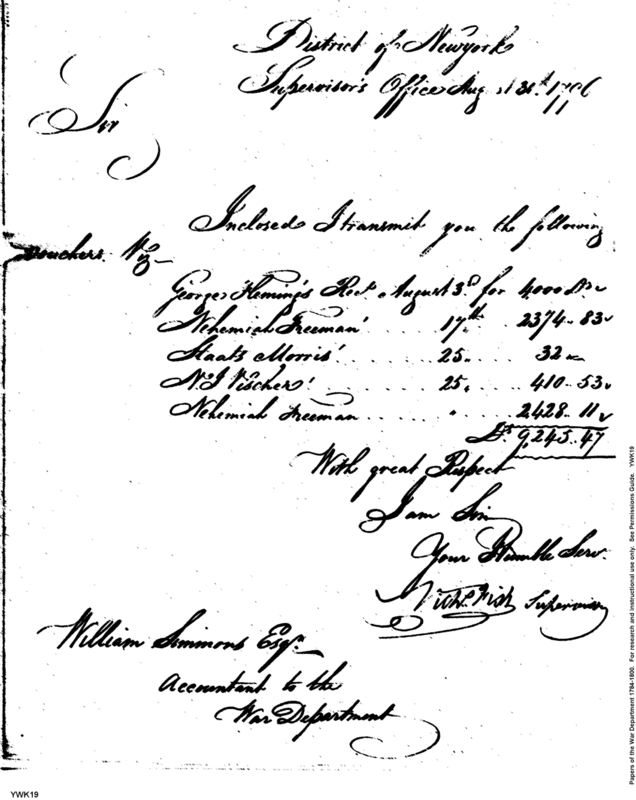 District of Newyork
Supervisor's Office Aug 31st 1796
Sir
Inclosed I transmit you the following
Vouchers Viz
George Fleming's Rect. August 3d. for 4,000 Ds.
Nehemiah Freeman' . . . . 17th. . . 2374.. 83
Staats Morris' . . . . . . . . . 25. . . . 32
N. J Vischer' . . . . . . . . . . 25. . . . 410.. 53
Nehemiah Freeman . . . . . " . . . 2428.. 11
Ds. 9,245.. 47
With great Respect
I am Sir
Your Humble Serv.
Nichs. Fish Supervisor
William Simmons Esqr.
Accountant to the
War Department
Papers of the War Department 1784-1800. For research and instructional use only. See Permissions Guide. YWK19
YWK19